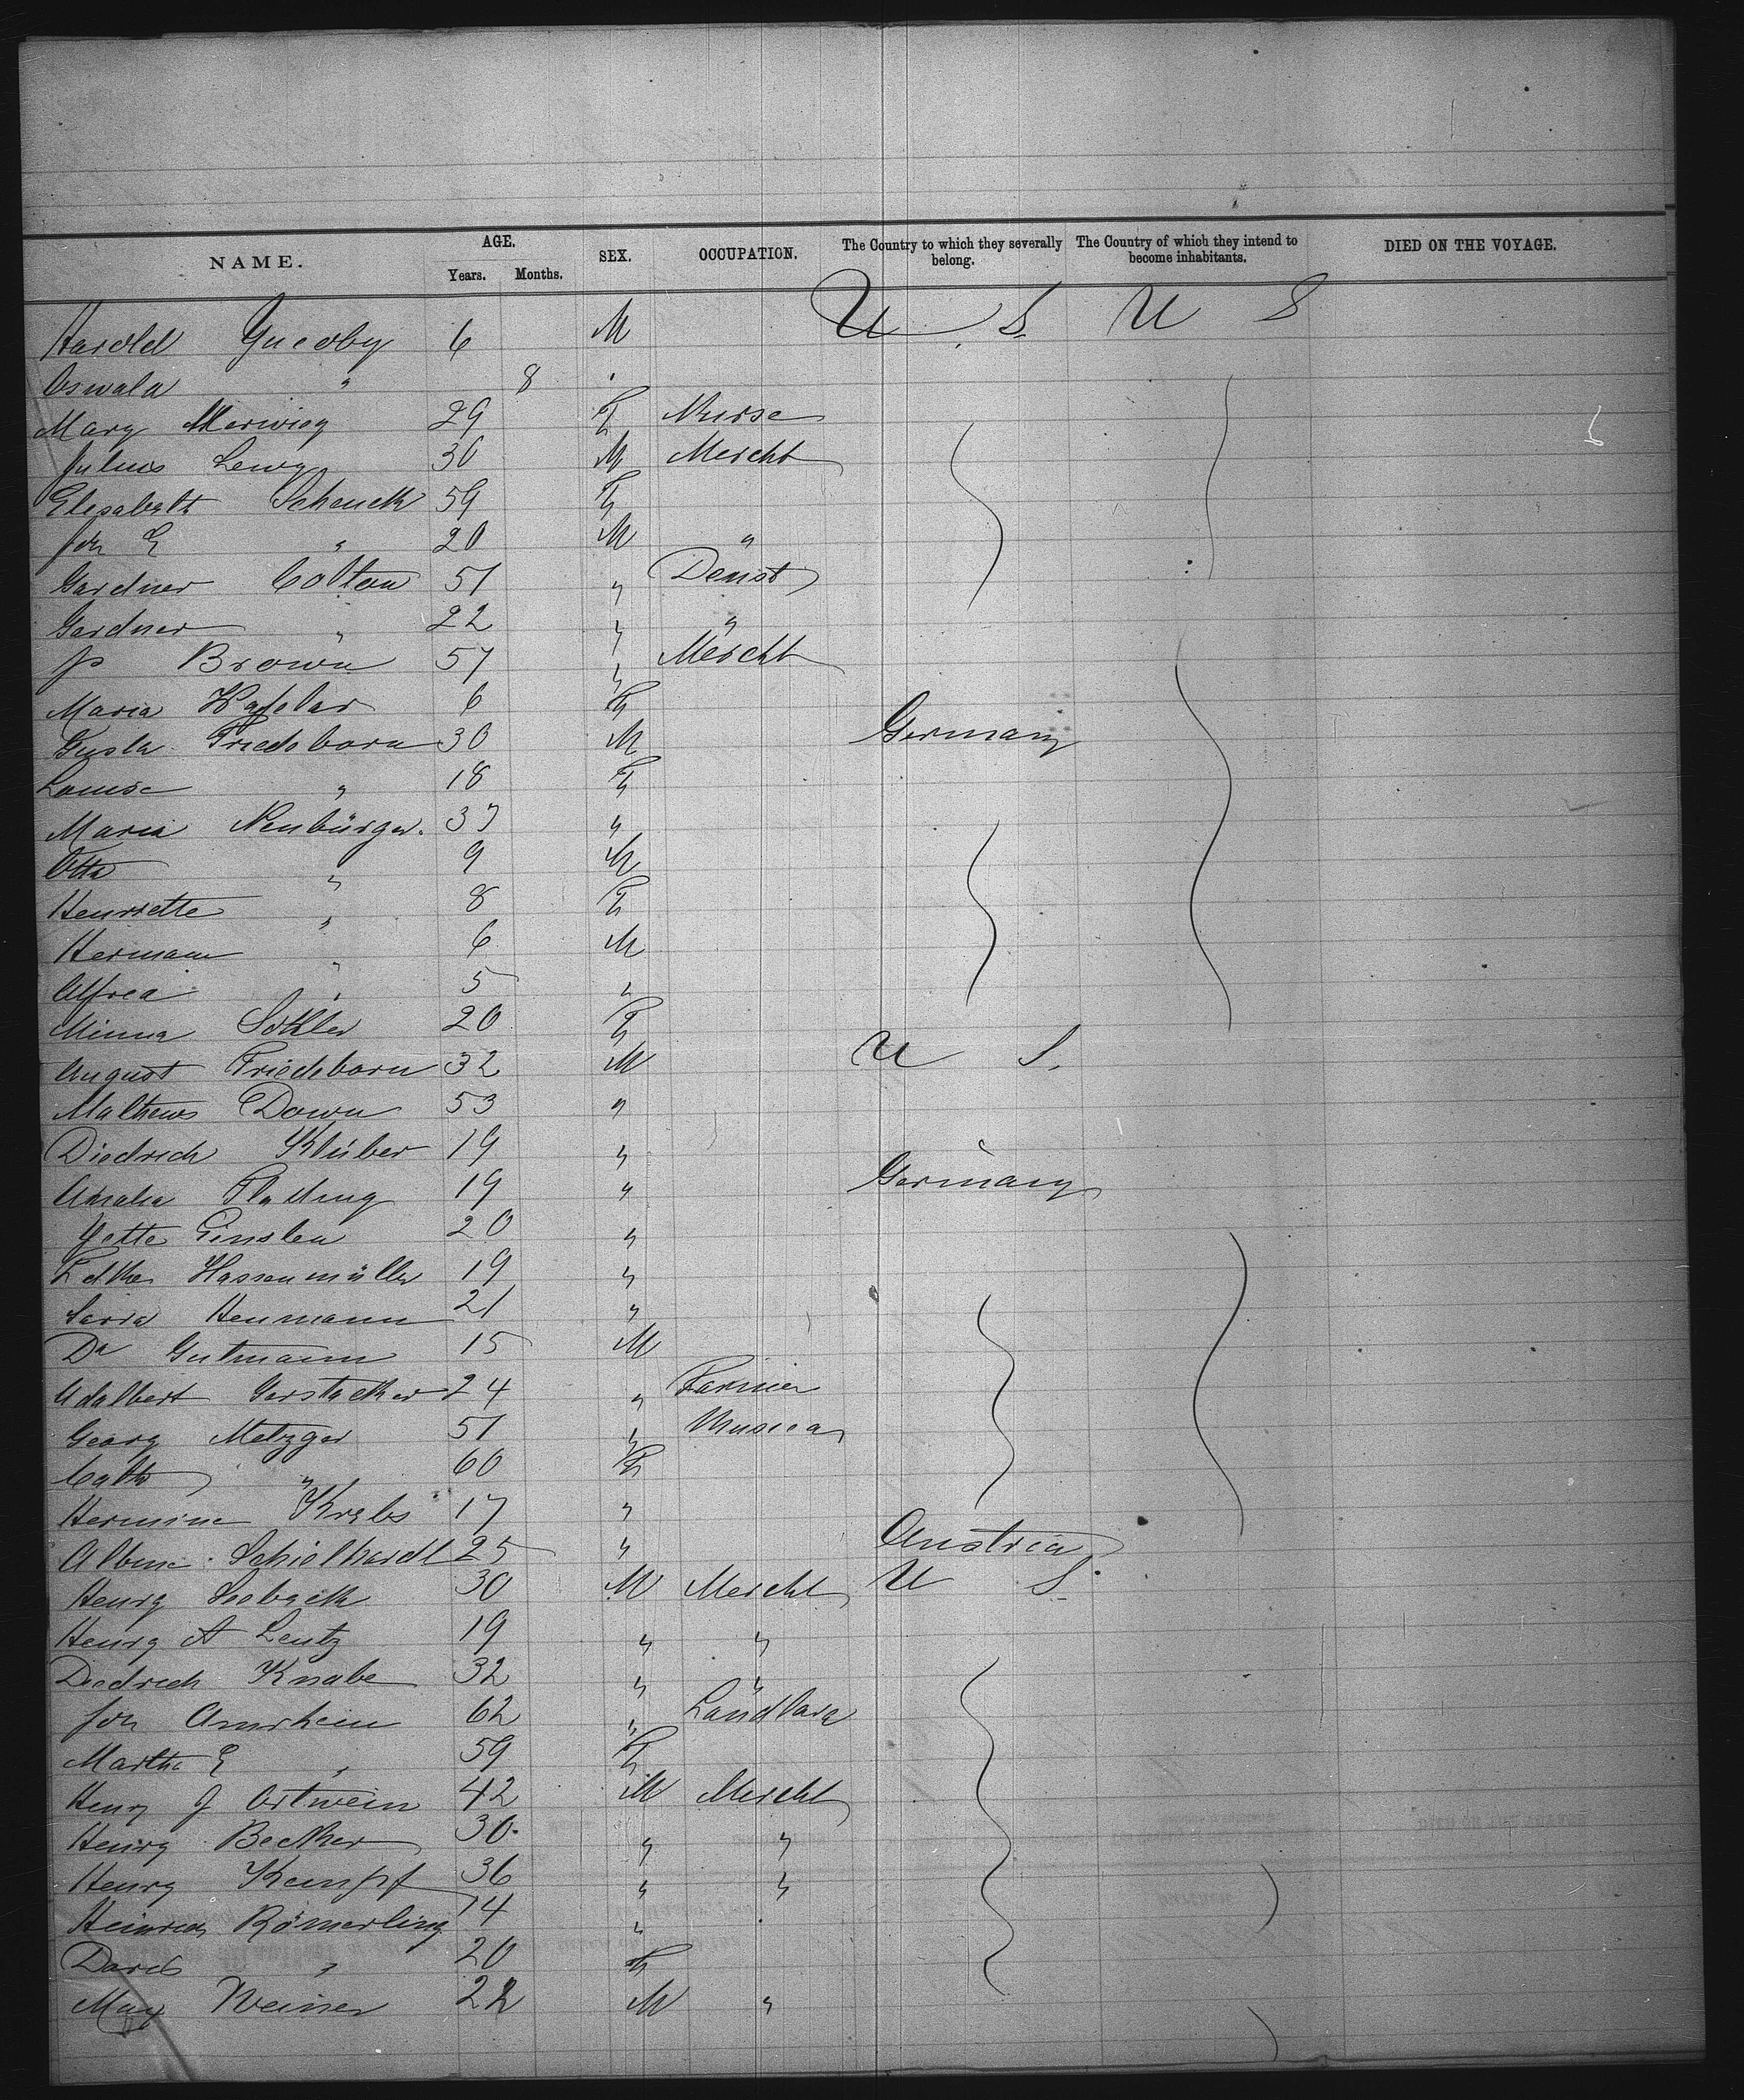 NAME. AGE. SEX. OCCUPATION. The Country to which they severally belong. The Country of which they intend to become inhabitants. DIED ON THE VOYAGE.
Years. Months.
Harold 6 M U. S. U S
Oswald " 8
Mary 29 F Nurse
Julius Lewy 36 M Mercht
Elesabeth Schenck 59 F
Joh E " 20 M "
Gardner Colton 51 " Denst
Gardner " 22 " "
Js Brown 57 " Mercht
Maria 6 F
Gusta Friedeborn 30 M Germany
Louise " 18 F
Maria Neubürger. 37 "
Otto " 9 M
Henriette " 8 F
Hermann " 6 M
Alfred " 5 "
Minna 20 F
August Friedeborn 32 M U S.
Mathews Down 53 "
Diedrich Klüber 19 "
Amalia 19 " Germany
Jette Ginslen 20 "
Hassenmüller 19 "
Heumann 21 "
Dd Gutmann 15 M
Adalbert Gerstacker 24 " Farmer
Georg Metzger 51 "
Cath " 60 F
Hermine Krebs 17 "
Schielhardt 25 " Austria
Henry Seebeck 30 M Mercht U S.
Henry A Lentz 19 " "
Diedrich Knabe 32 " "
Joh Amrhein 62 " Landlord
Martha E " 59 F
Henry J Ortwein 42 M Mercht
Henry Becker 30. " "
Henry Kempf 36 " "
Heinrich Römerling 14 "
" 20 F
Max Weiner 22 M "